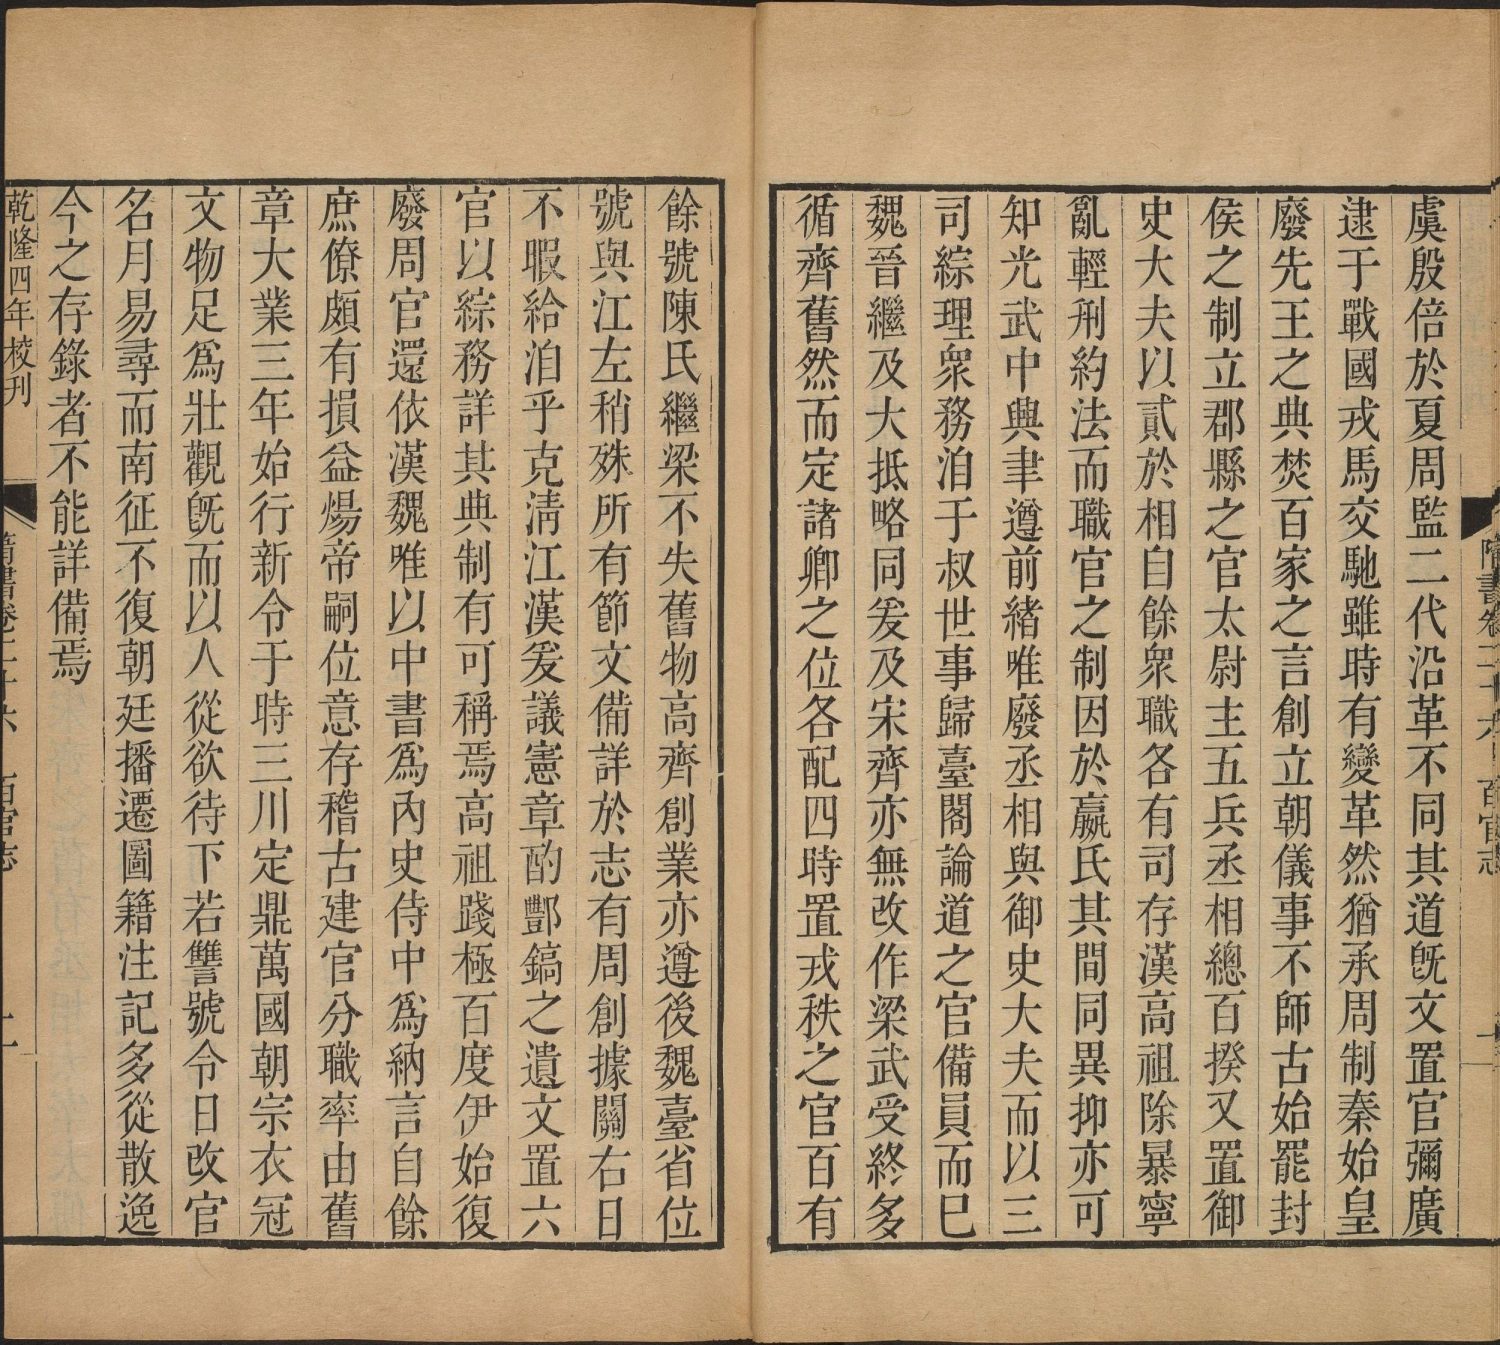 隋書卷二十六 百官志
虞殷倍於夏周監二代沿革不同其道既文置官彌廣
逮于戰國戎馬交馳雖時有變革然猶承周制秦始皇
廢先王之典焚百家之言創立朝儀事不師古始罷封
侯之制立郡縣之官太尉主五兵丞相總百揆又置御
史大夫以貳於相自餘衆職各有司存漢高祖除暴寧
亂輕刑約法而職官之制因於嬴氏其間同異抑亦可
知光武中興聿遵前緒唯廢丞相與御史大夫而以三
司綜理衆務洎于叔世事歸臺閣論道之官備員而已
魏晉繼及大抵略同爰及宋齊亦無改作梁武受終多
循齊舊然而定諸卿之位各配四時置戎秩之官百有
餘號陳氏繼梁不失舊物高齊創業亦遵後魏臺省位
號與江左稍殊所有節文備詳於志有周創據關右日
不暇給洎乎克淸江漢爰議憲章酌酆鎬之遺文置六
官以綜務詳其典制有可稱焉高祖踐極百度伊始復
廢周官還依漢魏唯以中書爲內史侍中爲納言自餘
庶僚頗有損益煬帝嗣位意存稽古建官分職率由舊
章大業三年始行新令于時三川定鼎萬國朝宗衣冠
文物足爲壯觀旣而以人從欲待下若讐號令日改官
名月易尋而南征不復朝廷播遷圖籍注記多從散逸
今之存錄者不能詳備焉
乾隆四年校刊
隋書卷二十六 百官志